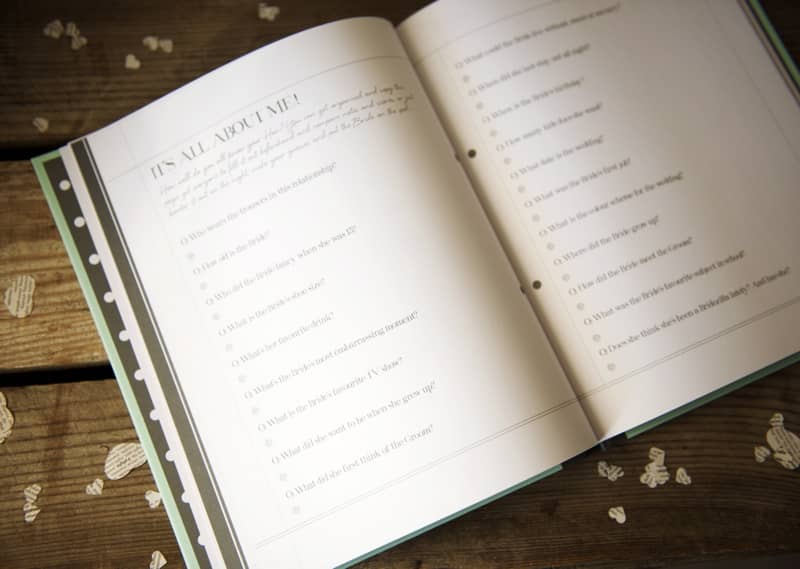 IT'S ALL ABOUT ME!
How well do you all know your Hen? You can get organised and copy this
page, get everyone to fill it out beforehand and compare notes and scores, or just
hand it out on the night, make your guesses and put the Bride on the spot...
Q: Who wears the trousers in this relationship?
Q: How old is the Bride?
Q: Who did the Bride fancy when she was 12?
Q: What is the Bride's shoe size?
Q: What's her favourite drink?
Q: What's the Bride's most embarrassing moment?
Q: What is the Bride's favourite TV show?
Q: What did she want to be when she grew up?
Q: What did she first think of the Groom?
Q: What could the Bride live without, music or
Q: When did she last stay out all night?
Q: When is the Bride's birthday?
Q: How many kids does she want?
Q: What date is the wedding?
Q: What was the Bride's first job?
Q: What is the colour scheme for the wedding?
Q: Where did the Bride grow up?
Q: How did the Bride meet the Groom?
Q: What was the Bride's favourite subject in school?
Q: Does she think she's been a Bridezilla lately? And has she?